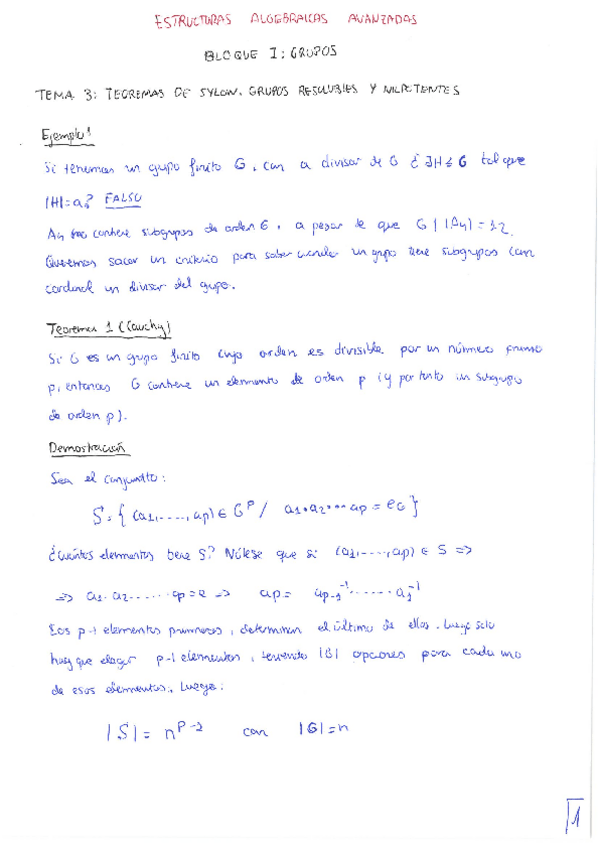 ESTRUCTURAS ALGEBRAICAS AVANZADAS
BLOQUE I: GRUPOS
TEMA 3: TEOREMAS DE SYLOW. GRUPOS RESOLUBLES Y NILPOTENTES
Ejemplo 1
Si tenemos un grupo finito G, con a divisor de G ¿∃H≤G tal que
|H|=a? FALSO
A₄ no contiene subgrupos de orden 6, a pesar de que 6 | |A₄| = 12.
Queremos sacar un criterio para saber cuando un grupo tiene subgrupos con
cardinal un divisor del grupo.
Teorema 1 (Cauchy)
Si G es un grupo finito cuyo orden es divisible por un número primo
p, entonces G contiene un elemento de orden p (y por tanto un subgrupo
de orden p).
Demostración
Sea el conjunto:
S = { (a₁,....,aₚ) ∈ Gᵖ / a₁·a₂····aₚ = e_G }
¿Cuántos elementos tiene S? Nótese que si (a₁,...,aₚ) ∈ S =>
=> a₁·a₂·······aₚ=e => aₚ = aₚ₋₁⁻¹·······a₁⁻¹
Los p-1 elementos primeros, determinan el último de ellos. Luego solo
hay que elegir p-1 elementos, teniendo |G| opciones para cada uno
de esos elementos. Luego:
|S| = nᵖ⁻¹ con |G|=n
1